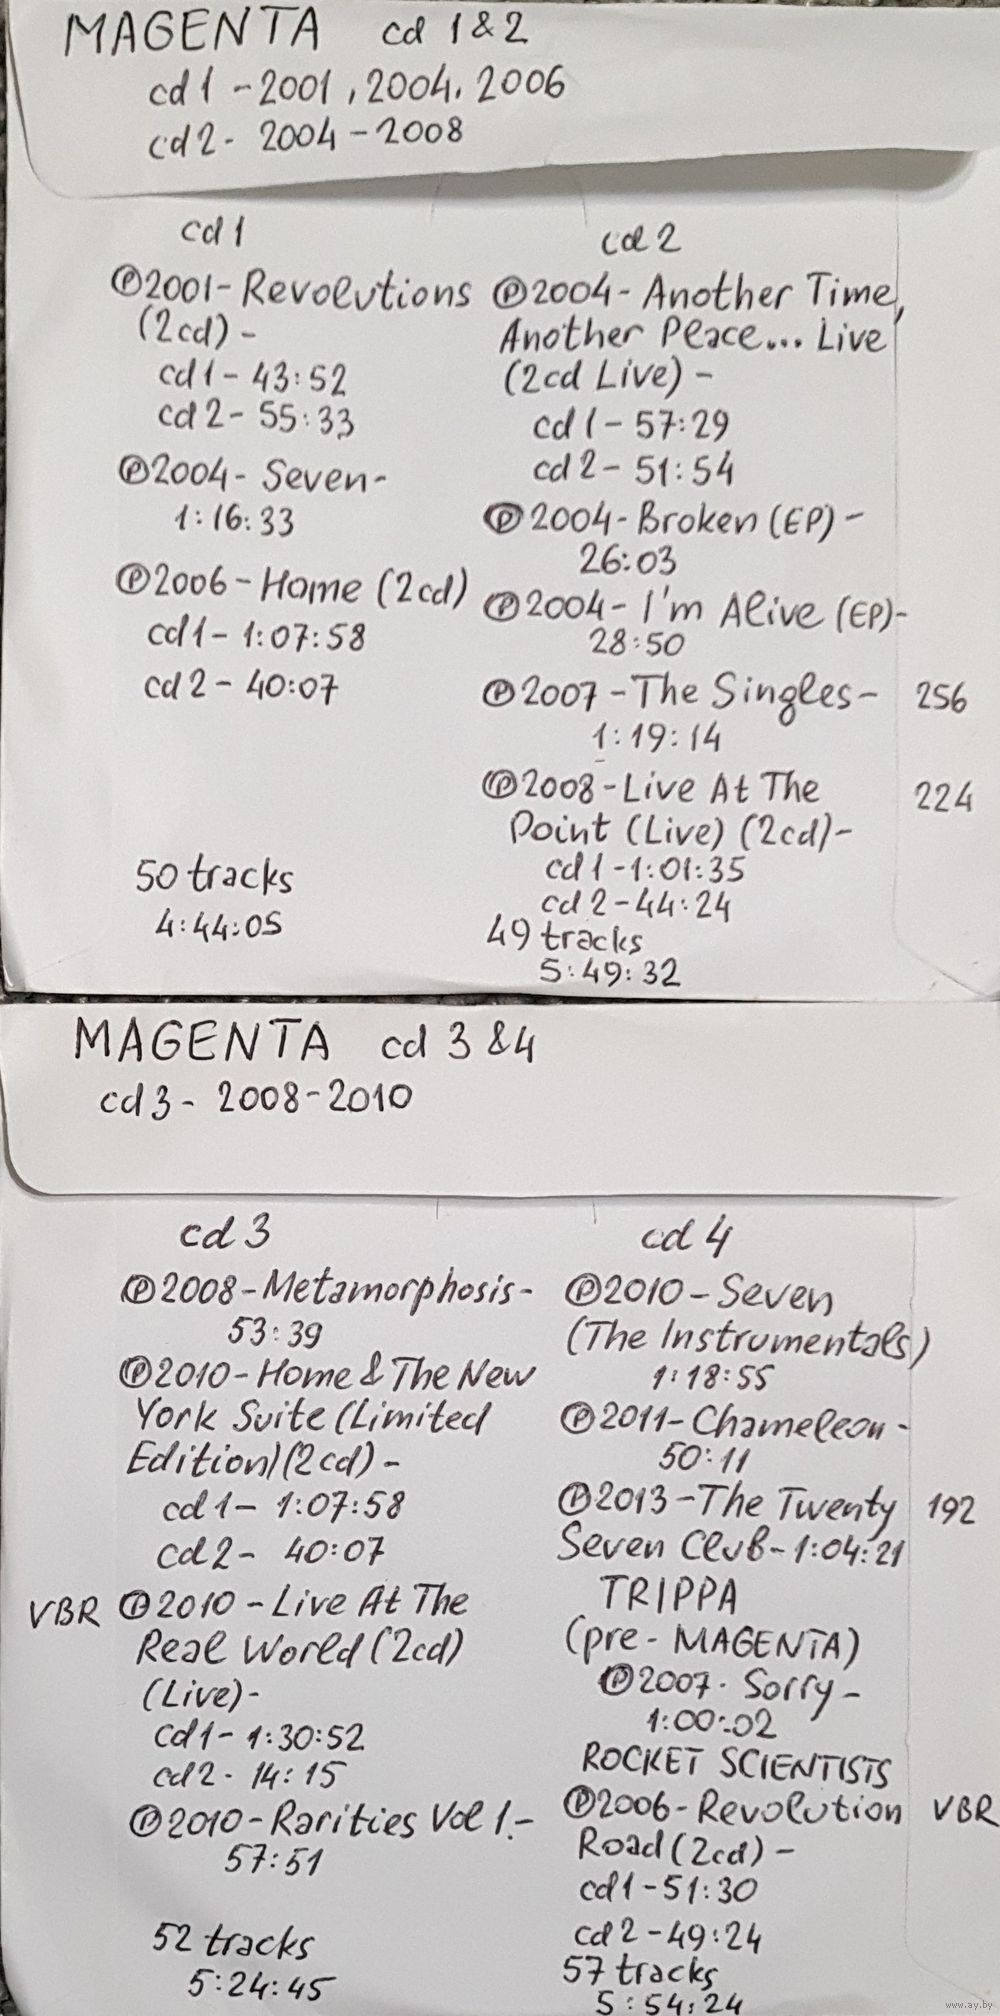 MAGENTA cd 1&2
cd 1 - 2001, 2004. 2006
cd 2 - 2004 - 2008
cd 1
℗2001 - Revolutions
(2cd) -
cd 1 - 43:52
cd 2 - 55:33
℗2004 - Seven -
1:16:33
℗2006 - Home (2cd)
cd 1 - 1:07:58
cd 2 - 40:07
50 tracks
4:44:05
cd 2
℗2004 - Another Time,
Another Peace... Live
(2cd Live) -
cd 1 - 57:29
cd 2 - 51:54
℗2004 - Broken (EP) -
26:03
℗2004 - I'm Alive (EP) -
28:50
℗2007 - The Singles - 256
1:19:14
℗2008 - Live At The 224
Point (Live) (2cd) -
cd 1 - 1:01:35
cd 2 - 44:24
49 tracks
5:49:32
MAGENTA cd 3 &4
cd 3 - 2008 - 2010
cd 3
℗2008 - Metamorphosis -
53:39
℗2010 - Home & The New
York Suite (Limited
Edition) (2cd) -
cd 1 - 1:07:58
cd 2 - 40:07
VBR ℗2010 - Live At The
Real World (2cd)
(Live) -
cd 1 - 1:30:52
cd 2 - 14:15
℗2010 - Rarities Vol 1. -
57:51
52 tracks
5:24:45
cd 4
℗2010 - Seven
(The Instrumentals)
1:18:55
℗2011 - Chameleon -
50:11
℗2013 - The Twenty 192
Seven Club - 1:04:21
TRIPPA
(pre - MAGENTA)
℗2007 - Sorry -
1:00:02
ROCKET SCIENTISTS
℗2006 - Revolution VBR
Road (2cd) -
cd 1 - 51:30
cd 2 - 49:24
57 tracks
5:54:24
www.ay.by